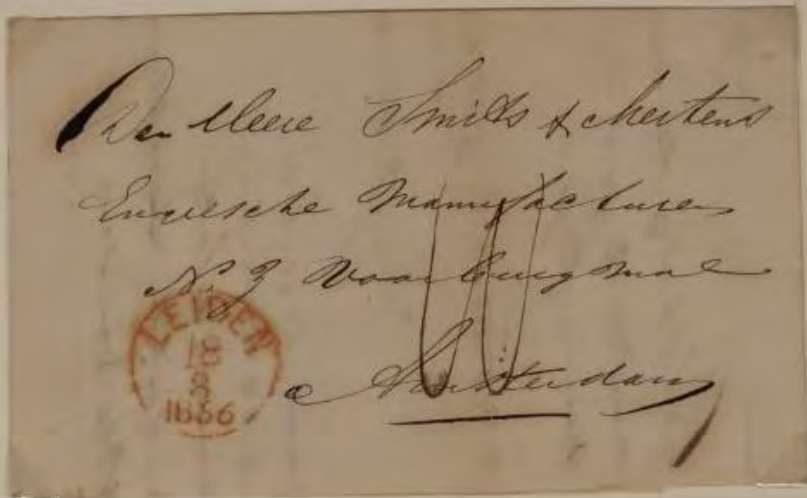 Den Heere Smits & Mertens
Engelsche Manufacturen
N. Z Voorburgwal
Amsterdam
LEIDEN
18
8
1856